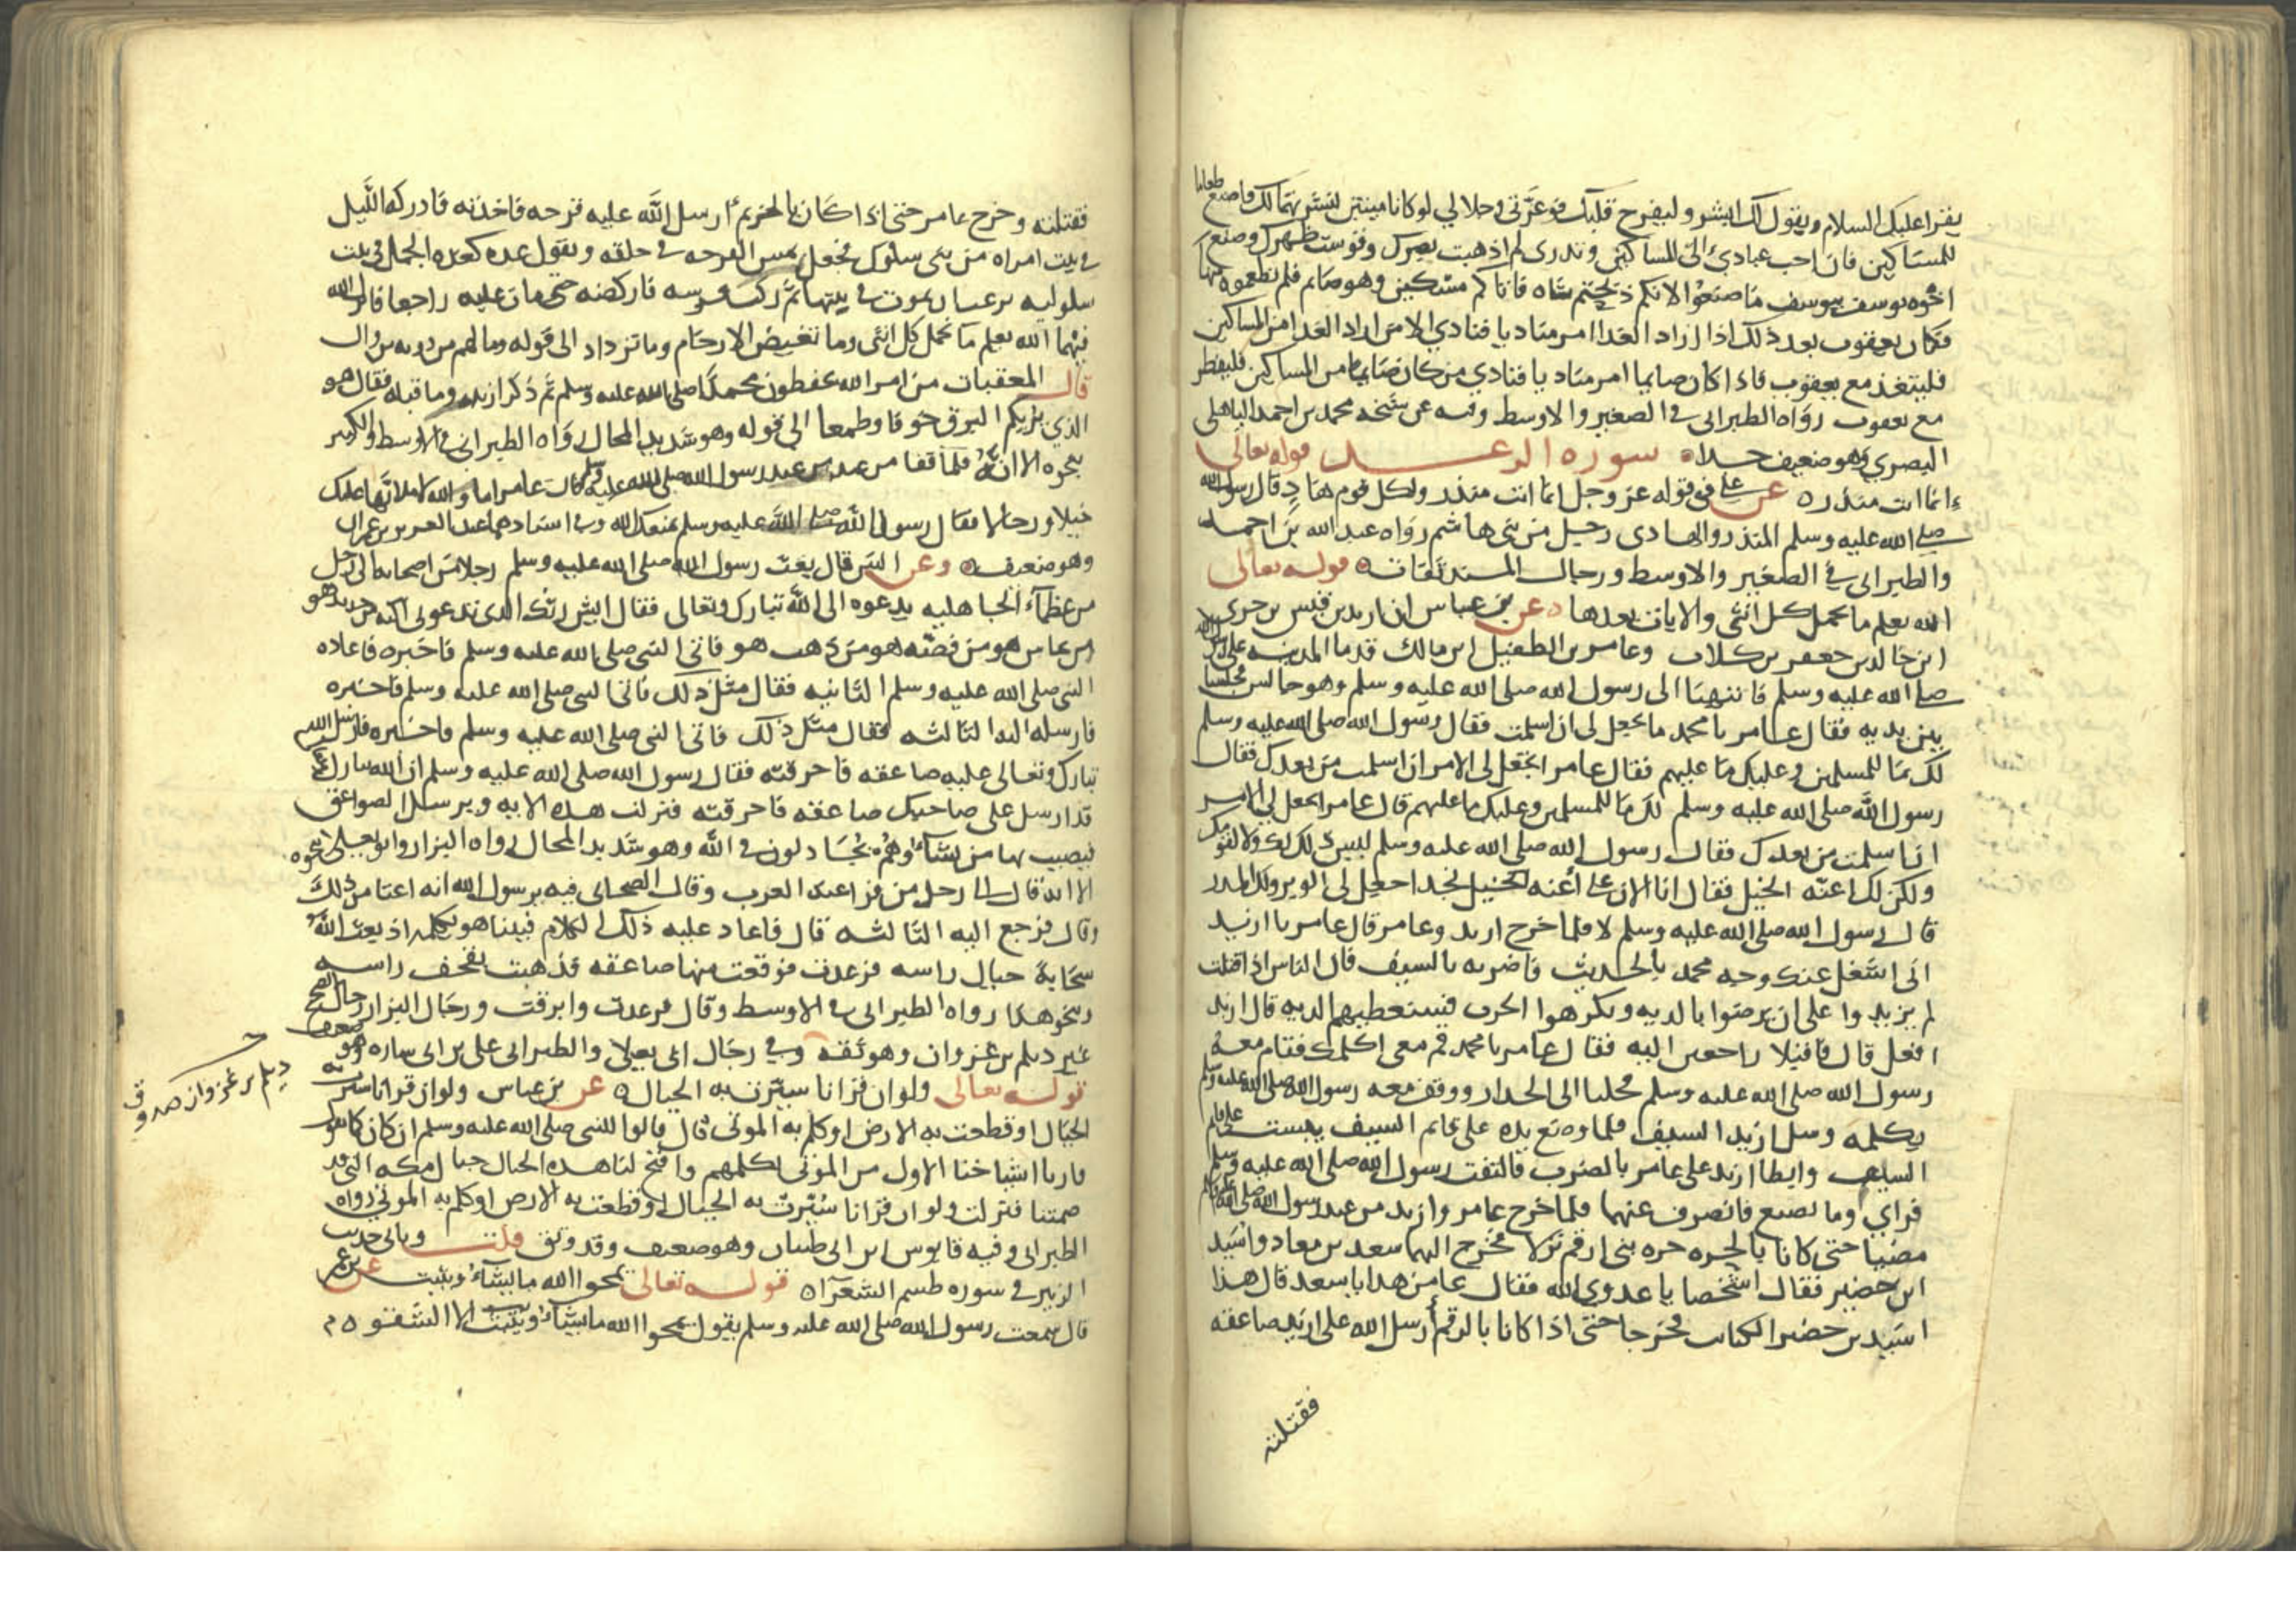 يقرا عليك السلام ويقول لك ابشر وليفرح قلبك فوعزتي وجلالي لو كانا ميتين لنشرتهما لك فاصنع طعاما
للمساكين فان احب عبادي الى المساكين وتدري لم اذهبت بصرك وقوست ظهرك وصنع
اخوه يوسف بيوسف ما صنعوا الا نكم ذبحتم شاه فاتاكم مسكين وهو صايم فلم تطعموه منها
فكان يعقوب بعد ذلك اذا اراد الغدا امر مناديا فنادي الا من اراد الغدا من المساكين
فليتغد مع يعقوب فاذا كان صايما امر مناديا فنادي من كان صايما من المساكين فليفطر
مع يعقوب رواه الطبراني في الصغير والاوسط وفيه عن شيخه محمد بن احمد الباهلي
البصري وهو ضعيف جدا ه سوره الرعد قوله تعالى
انما انت منذر ه عن علي في قوله عز وجل انما انت منذر ولكل قوم هاد قال رسول الله
صلى الله عليه وسلم المنذر والهادي رجل من بني هاشم رواه عبد الله بن احمد
والطبراني في الصغير والاوسط ورجال المسند ثقات ه قوله تعالى
الله يعلم ما تحمل كل انثى والايات بعدها ه عن بن عباس ان اربد بن قيس بن جزي
ابن خالد بن جعفر بن كلاب وعامر بن الطفيل ابن مالك قدما المدينه على رسول الله
صلى الله عليه وسلم فانتهيا الى رسول الله صلى الله عليه وسلم وهو جالس فجلسا
بين يديه فقال عامر يا محمد ما تجعل لي ان اسلمت فقال رسول الله صلى الله عليه وسلم
لك ما للمسلمين وعليك ما عليهم فقال عامر اتجعل لي الامر ان اسلمت من بعدك فقال
رسول الله صلى الله عليه وسلم لك ما للمسلمين وعليك ما عليهم قال عامر اتجعل لي الامر
ان اسلمت من بعدك فقال رسول الله صلى الله عليه وسلم ليس ذلك لك ولا لقومك
ولكن لك اعنة الخيل فقال انا الان على أعنه الخيل نجد اجعل لي الوبر ولك المدر
قال رسول الله صلى الله عليه وسلم لا فلما خرج اربد وعامر قال عامر يا اربد
انى اشغل عنك وجه محمد بالحديث فاضربه بالسيف فان الناس اذا قتلت
لم يزيدوا على ان يرضوا بالديه ويكرهوا الحرب فسنعطيهم الديه قال اربد
افعل قال فاقبلا راجعين اليه فقال عامر يا محمد قم معي اكلمك فقام معه
رسول الله صلى الله عليه وسلم فخليا الى الجدار ووقف معه رسول الله صلى الله عليه وسلم
يكلمه وسل اربد السيف فلما وضع يده على قايم السيف يبست على قايم
السيف وابطا اربد على عامر بالضرب فالتفت رسول الله صلى الله عليه وسلم
فراي وما يصنع فانصرف عنهما فلما خرج عامر واربد من عند رسول الله صلى الله عليه وسلم
مضيا حتى كانا بالحره حره بني ارقم نزلا فخرج اليهما سعد بن معاد واسيد
ابن حضير فقال اشخصا يا عدوي الله فقال عامر من هدا يا سعد قال هذا
اسيد بن حضير الكتاب فخرجا حتى اذا كانا بالرقم أرسل الله على اربد صاعقه
فقتلته
فقتلته وخرج عامر حتى اذا كان بالخريم أرسل الله عليه قرحه فاخذته فادركه الليل
في بيت امراه من بني سلول فجعل يمس القرحه في حلقه ويقول غده كغده الجمل في بيت
سلوليه يرغب ان يموت في بيتها ثم ركب فرسه فاركضه حتى مات عليه راجعا فانزل الله
فيهما الله يعلم ما تحمل كل انثى وما تغيض الارحام وما تزداد الى قوله وما لهم من دونه من وال
قال المعقبات من امر الله يحفظون محمدا صلى الله عليه وسلم ثم ذكر اربد وما قتله فقال هو
الذي يريكم البرق خوفا وطمعا الى قوله وهو شديد المحال رواه الطبراني في الاوسط والكبير
بنحوه الا انه فلما قفا من عند رسول الله صلى الله عليه وسلم قال عامر اما والله لاملانها عليك
خيلا ورجالا فقال رسول الله صلى الله عليه وسلم يمنعك الله وفي اسنادهما عبد العزيز بن عمران
وهو ضعيف ه وعن انس قال بعث رسول الله صلى الله عليه وسلم رجلا من اصحابه الى رجل
من عظماء الجاهليه يدعوه الى الله تبارك وتعالى فقال ايش ربك الذي تدعوني اليه من حديد هو
من نحاس هو من فضه هو من ذهب هو فاتى النبي صلى الله عليه وسلم فاخبره فاعاده
النبي صلى الله عليه وسلم الثانيه فقال مثل ذلك فاتى النبي صلى الله عليه وسلم فاخبره
فارسله اليه الثالثه فقال مثل ذلك فاتى النبي صلى الله عليه وسلم فاخبره فارسل الله
تبارك وتعالى عليه صاعقه فاحرقته فقال رسول الله صلى الله عليه وسلم ان الله تبارك وتعالى
قد ارسل على صاحبك صاعقه فاحرقته فنزلت هذه الايه ويرسل الصواعق
فيصيب بها من يشاء وهم يجادلون في الله وهو شديد المحال رواه البزار وابو يعلى بنحوه
الا انه قال الى رجل من فراعنه العرب وقال الصحابي فيه يرسول الله انه اعتا من ذلك
وقال فرجع اليه الثالثه قال فاعاد عليه ذلك الكلام فبينا هو يكلمه اذ بعث الله
سحابة حيال راسه فرعدت فوقعت منها صاعقه فذهبت بقحف راسه
وبنحو هذا رواه الطبراني في الاوسط وقال فرعدت وابرقت ورجال البزار رجال الصحيح
غير ديلم بن غزوان وهو ثقه وفي رجال ابى يعلى والطبراني على بن ابى ساره وهو ضعيف
ديلم بن غزوان صدوق
قوله تعالى ولو ان قرانا سيرت به الجبال ه عن بن عباس ولو ان قرانا سيرت به
الجبال او قطعت به الارض او كلم به الموتى قال قالوا للنبي صلى الله عليه وسلم ان كان كما تقول
فارنا اشياخنا الاول من الموتى نكلمهم وافتح لنا هذه الجبال جبال مكه التى قد
ضمتنا فنزلت ولو ان قرانا سيرت به الجبال او قطعت به الارض او كلم به الموتى رواه
الطبراني وفيه قابوس بن ابى ظبيان وهو ضعيف وقد وثق قلت وياتى حديث
الزبير في سوره طسم الشعرآ ه قوله تعالى يمحوا الله ما يشاء ويثبت عن بن عمر
قال سمعت رسول الله صلى الله عليه وسلم يقول يمحوا الله ما يشاء ويثبت الا الشقوه